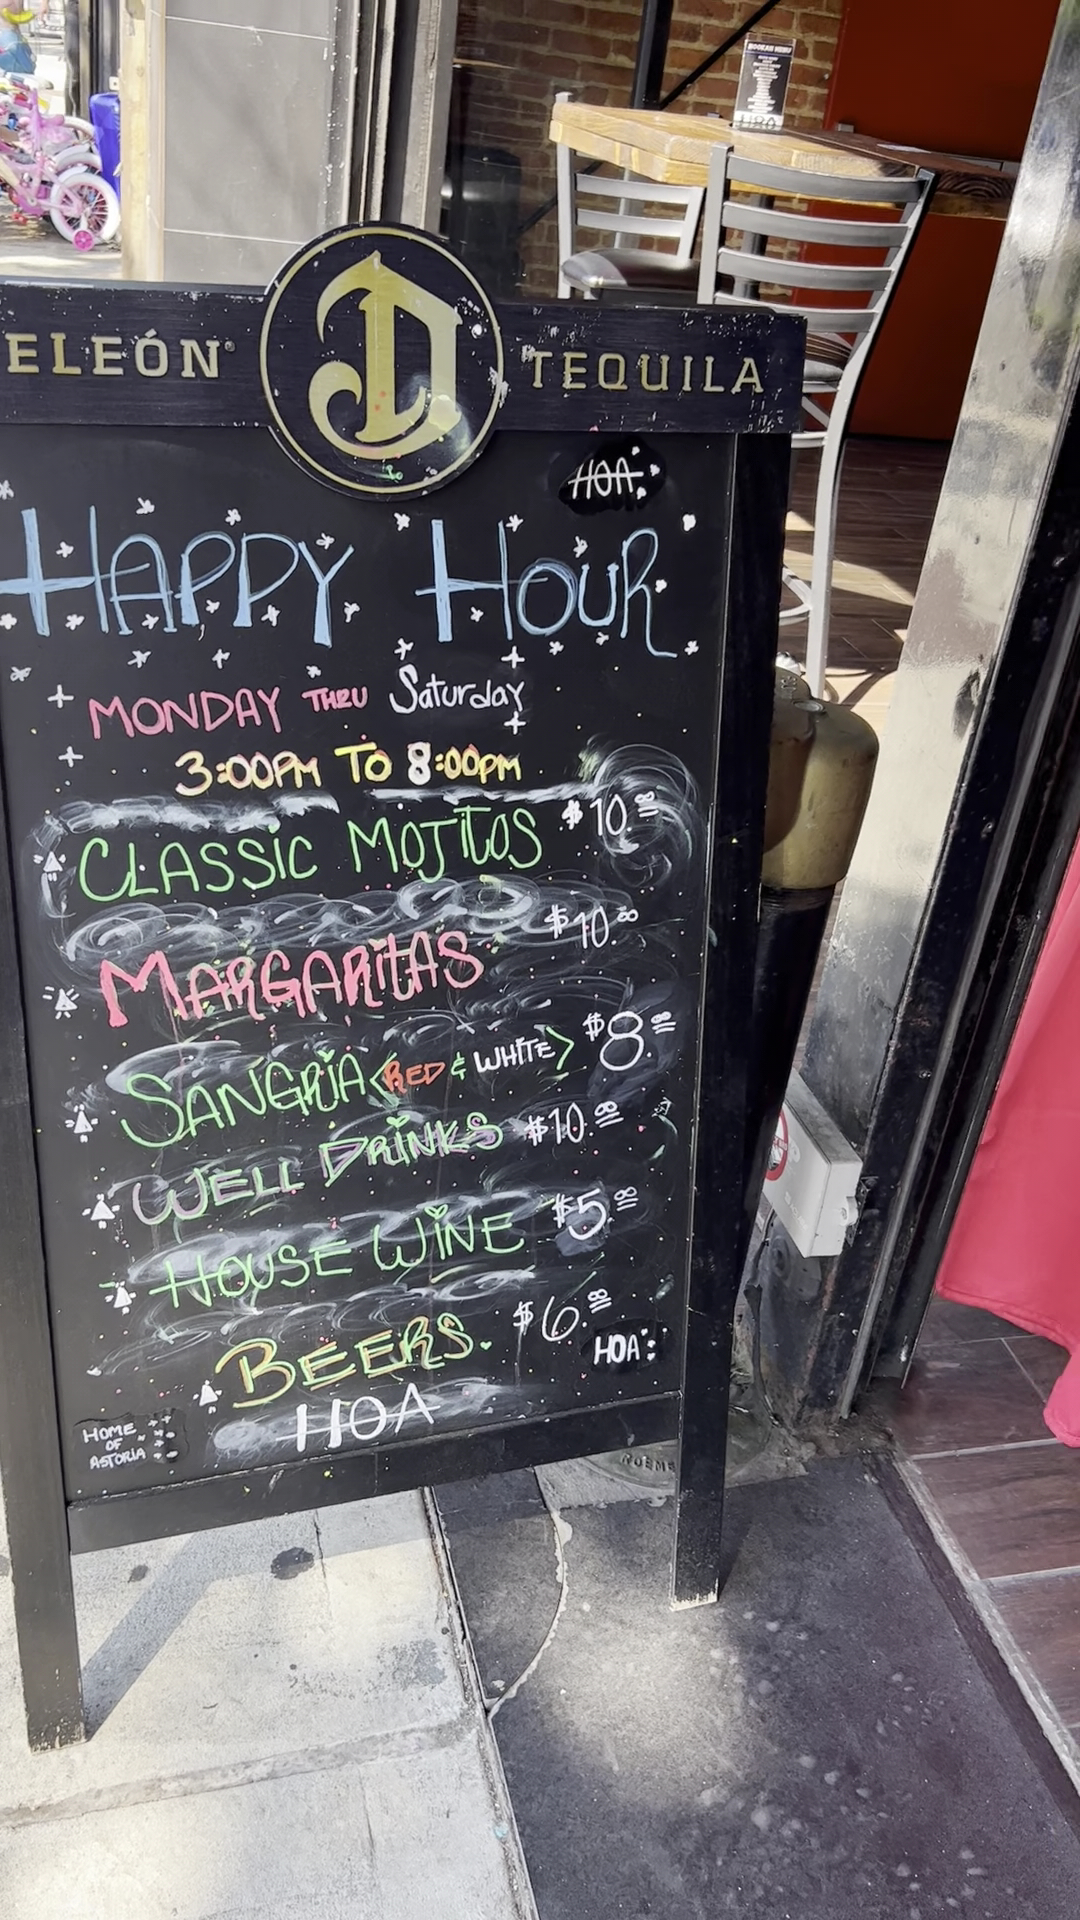 HOOKAH MENU
ELEÓN D TEQUILA
HOA
HAPPY HOUR
MONDAY THRU Saturday
3:00PM TO 8:00PM
CLASSIC MOJITOS $10.00
MARGARITAS $10.00
SANGRIA <RED & WHITE> $8.00
WELL DRINKS $10.00
HOUSE WINE $5.00
BEERS. $6.00
HOA
HOA
HOME
OF
ASTORIA